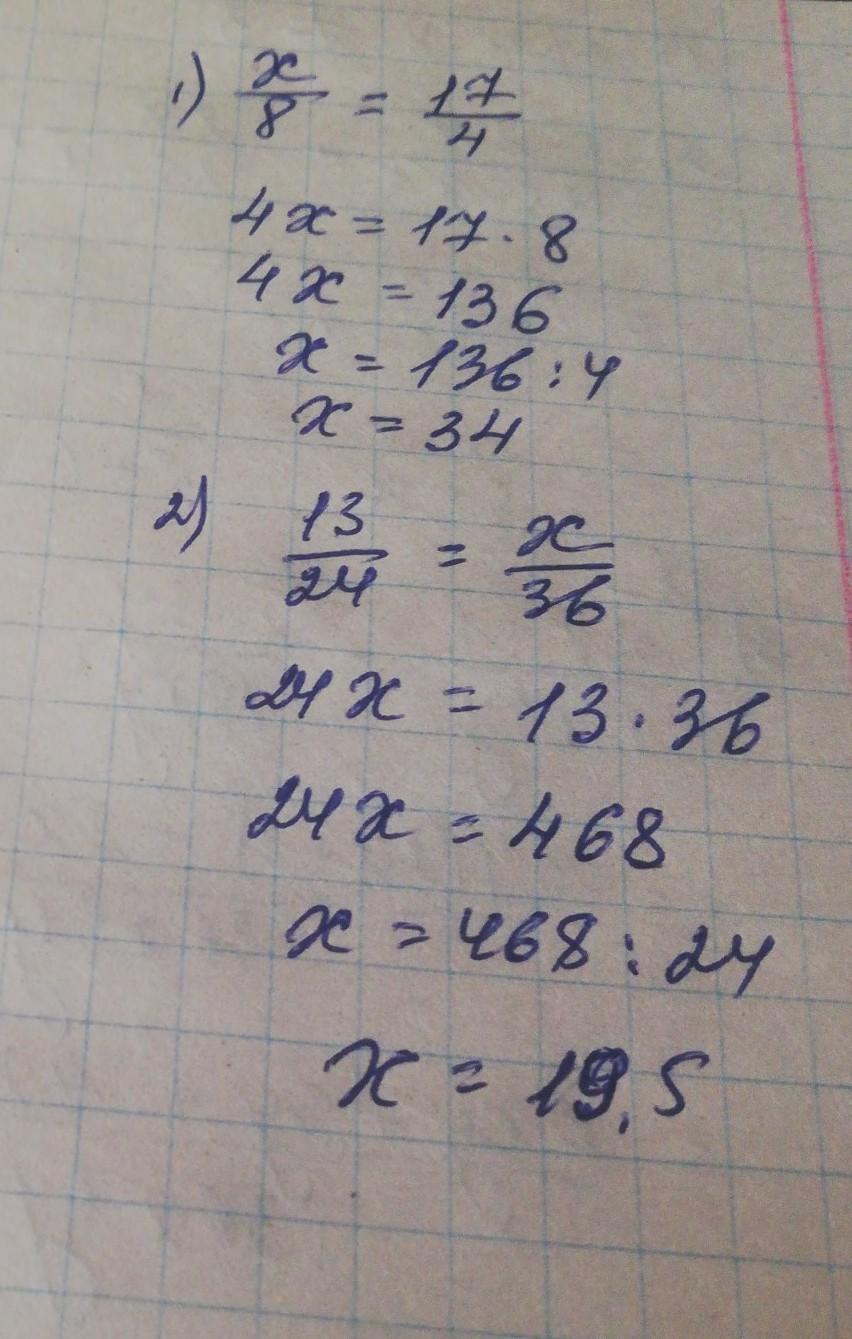 1) x/8 = 17/4
4x = 17 · 8
4x = 136
x = 136 : 4
x = 34
2) 13/24 = x/36
24x = 13 · 36
24x = 468
x = 468 : 24
x = 19,5